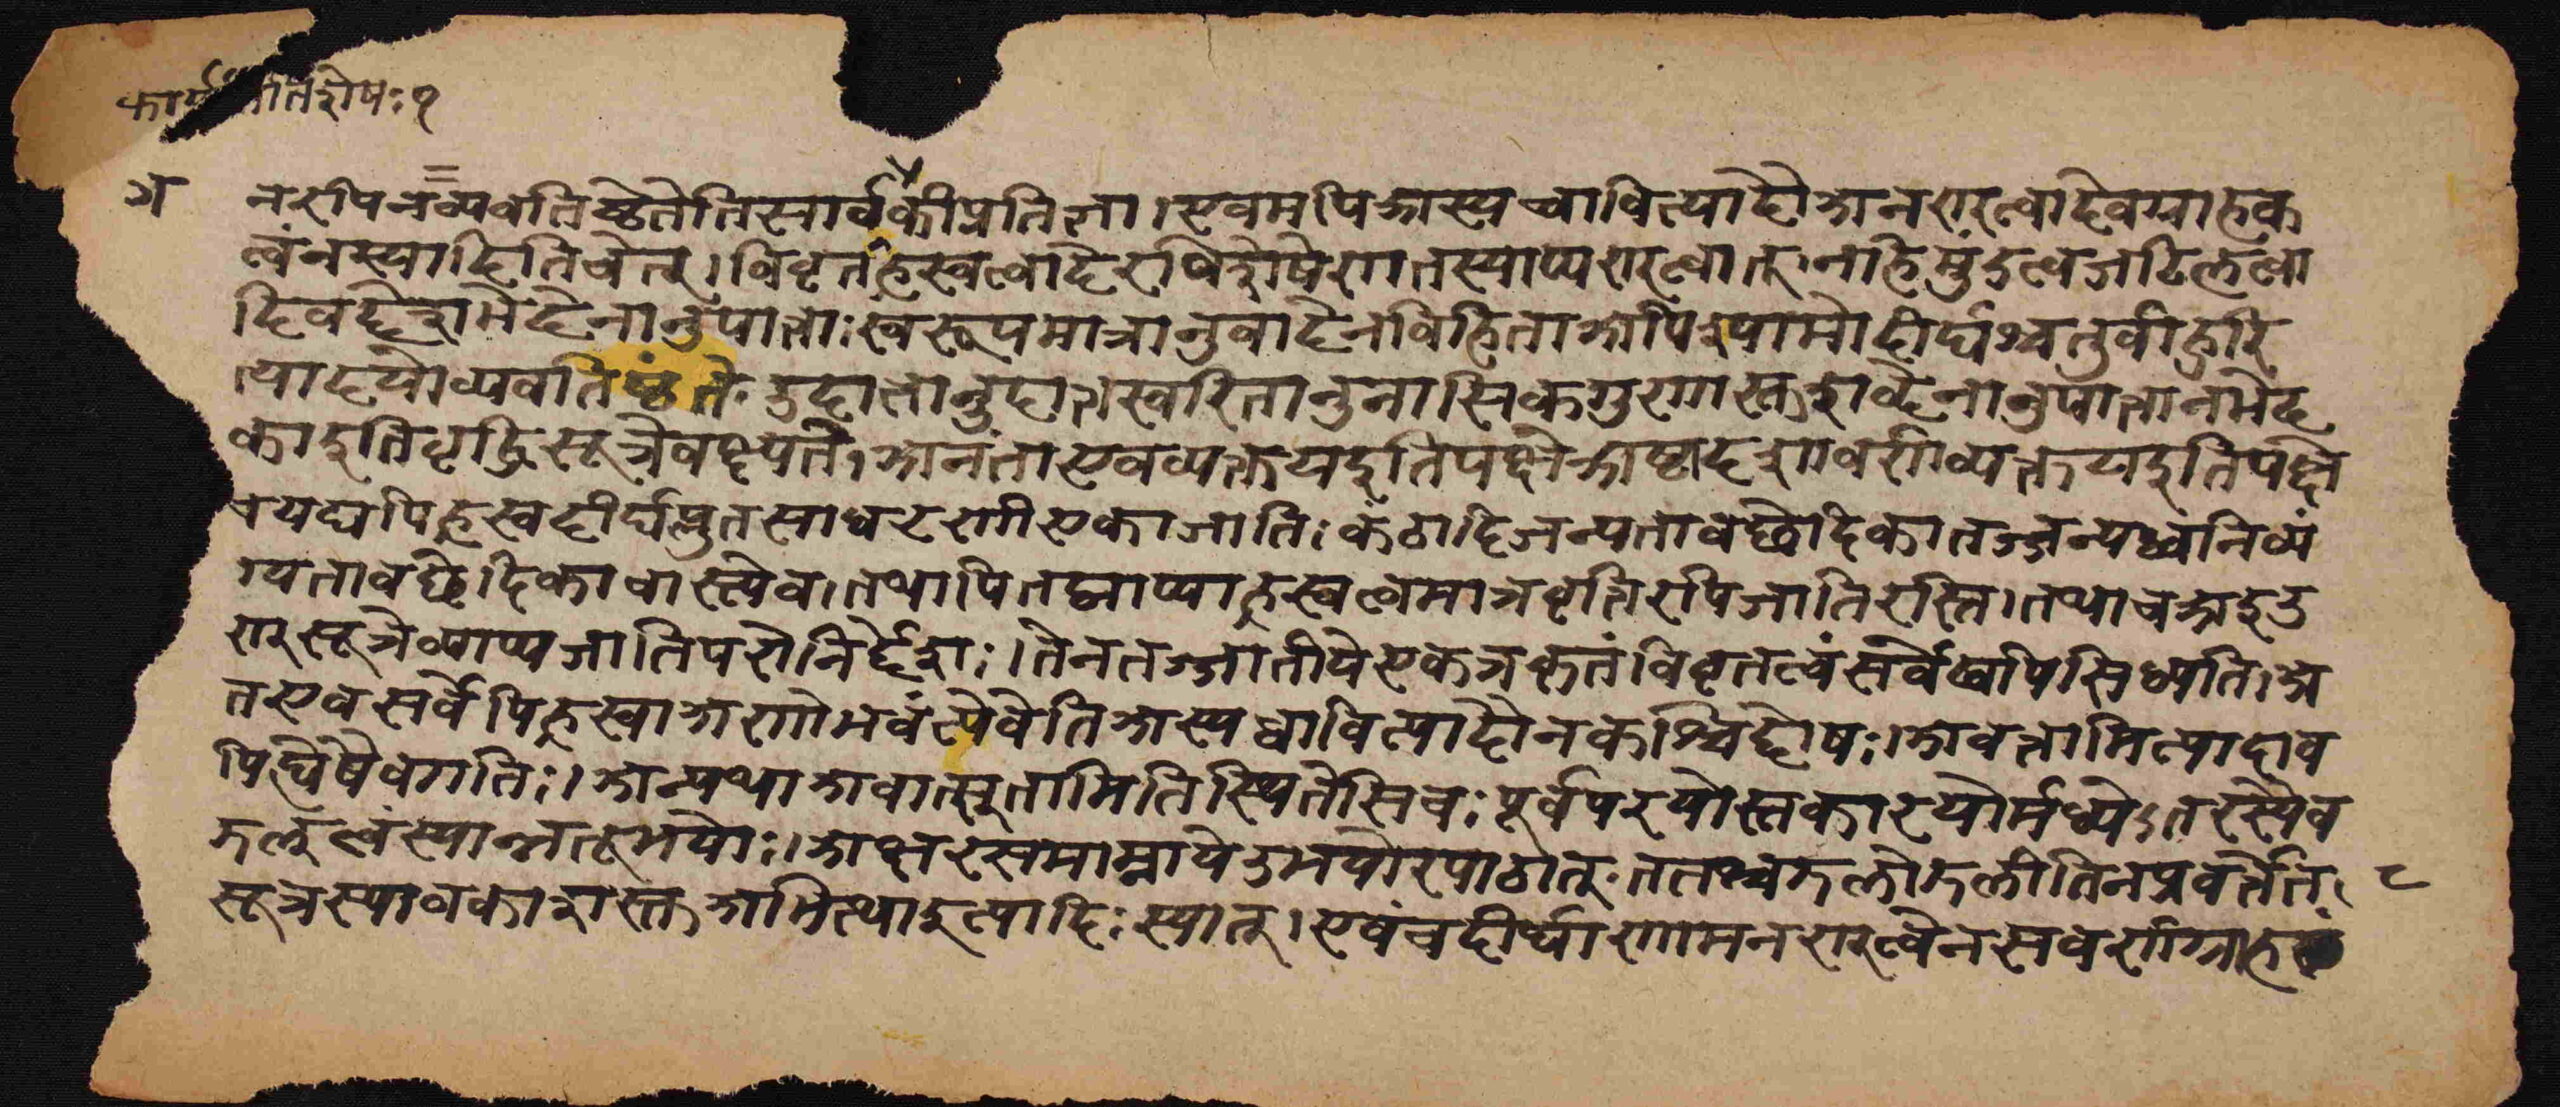 कार्य
तिशेषः १
ग नरपि न व्यवतिष्ठेतेति सार्वकी प्रतिज्ञा । एवमपि अस्य च्वावित्यादौ अनण्त्वादेव ग्राहक
त्वं न स्यादिति चेत् । विवृत ह्रस्वत्वादेरविशेषेण तस्याप्यण्त्वात् । नहि मुंडत्व जटिलत्वा
दिवद्देशभेदेनानुपात्ताः स्वरूपमात्रानुवादेन विहिता अपि श्यामो दीर्घश्चतुर्बाहुरि
त्यादयो व्यवतिष्ठंते । उदात्तानुदात्त स्वरितानुनासिकगुणास्तु शब्देनानुपात्ता न भेद
का इति वृद्धिसूत्रे वक्ष्यते । अनंता एव व्यक्तय इति पक्षे अष्टादश अवर्णव्यक्तय इति पक्षे
च यद्यपि ह्रस्वदीर्घप्लुतसाधारणी एका जातिः कंठादिजन्यतावछेदिका तज्जन्यध्वनिव्यं
ग्यतावछेदिका वास्त्येव । तथापि तद्व्याप्या ह्रस्वत्वमात्रवृत्तिरपि जातिरस्ति । तथा च अइउ
ण् सूत्रे व्याप्यजातिपरो निर्द्देशः । तेन तज्जातीये एकत्र कृतं विवृतत्वं सर्वेष्वपि सिध्यति । अ
त एव सर्वेपि ह्रस्वा अणो भवंत्येवेति अस्य च्वावित्यादौ न कश्चिद्दोषः । अवत्तामित्यादाव
पि द्येषैव गतिः । अन्यथा अवात्सूतामिति स्थिते सिचः पूर्वपरयोस्तकारयोर्मध्येऽतरस्यैव
झल्त्वं स्यान्नतूभयोः । अक्षरसमाम्नाये उभयोरपाठात् । ततश्च झलो झलीति न प्रवर्तेत ।
सूत्रस्यावकाशस्तु अभित्था इत्यादिः स्यात् । एवं च दीर्घाणामनण्त्वेन सवर्णग्राह
८